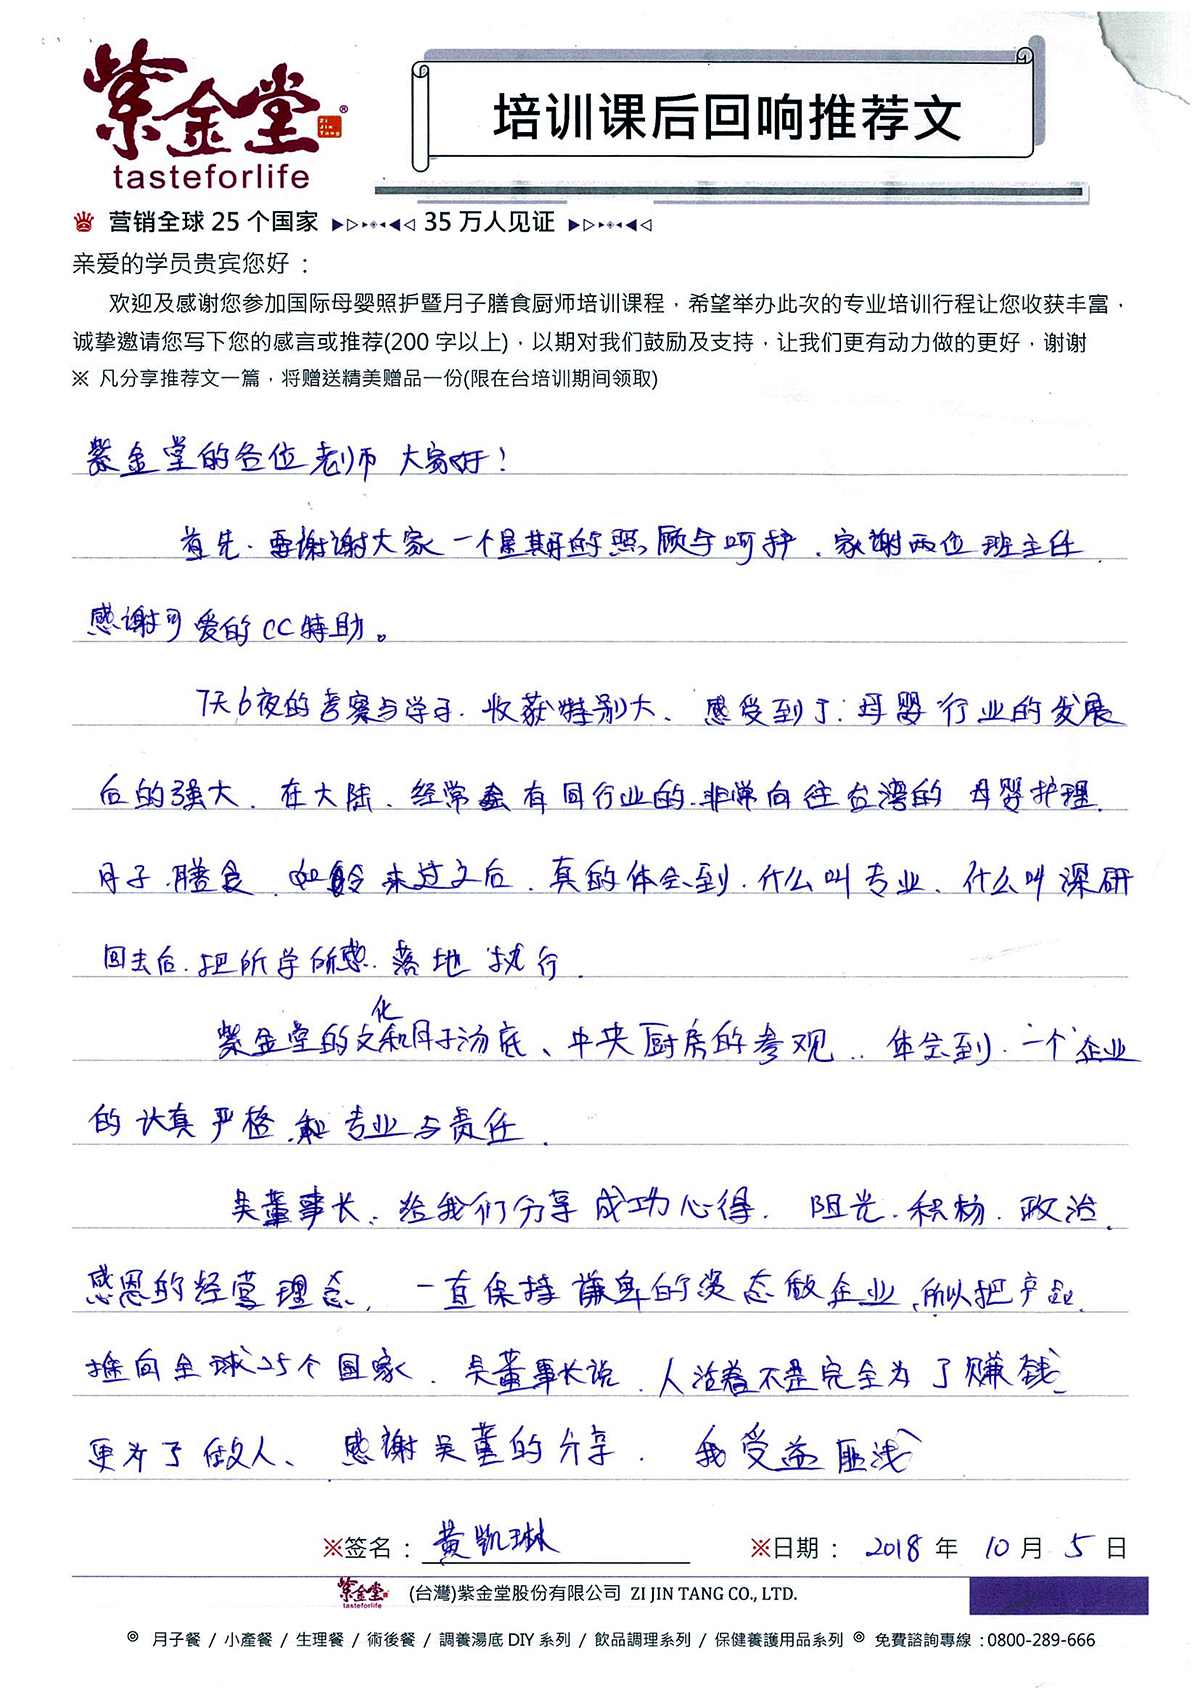 紫金堂®
Zi Jin Tang
tasteforlife
培训课后回响推荐文
营销全球 25 个国家 ▶▷▸◈◂◀◁ 35 万人见证 ▶▷▸◈◂◀◁
亲爱的学员贵宾您好：
欢迎及感谢您参加国际母婴照护暨月子膳食厨师培训课程，希望举办此次的专业培训行程让您收获丰富，
诚挚邀请您写下您的感言或推荐(200 字以上)，以期对我们鼓励及支持，让我们更有动力做的更好，谢谢
※ 凡分享推荐文一篇，将赠送精美赠品一份(限在台培训期间领取)
紫金堂的各位老师 大家好！
首先.要谢谢大家一个星期的照顾与呵护、谢两位班主任.
感谢可爱的CC特助。
7天6夜的考察与学习.收获特别大、感受到了.母婴行业的发展
后的强大.在大陆、经常会有同行业的.非常向往台湾的母婴护理.
月子.膳食.来过之后.真的体会到.什么叫专业、什么叫深研
回去后.把所学所感.落地执行.
紫金堂的文化和月子汤底、中央厨房的参观..体会到.一个企业
的认真严格.和专业与责任.
吴董事长、给我们分享成功心得.阳光.积极.政治.
感恩的经营理念,一直保持谦卑的姿态做企业.所以把产品.
推向全球25个国家.吴董事长说.人活着不是完全为了赚钱
更为了做人、感谢吴董的分享.我受益匪浅
※签名：黄凯琳 ※日期：2018 年 10 月 5 日
紫金堂 tasteforlife (台灣)紫金堂股份有限公司 ZI JIN TANG CO., LTD.
◎ 月子餐 / 小產餐 / 生理餐 / 術後餐 / 調養湯底 DIY 系列 / 飲品調理系列 / 保健養護用品系列 ◎ 免費諮詢專線：0800-289-666